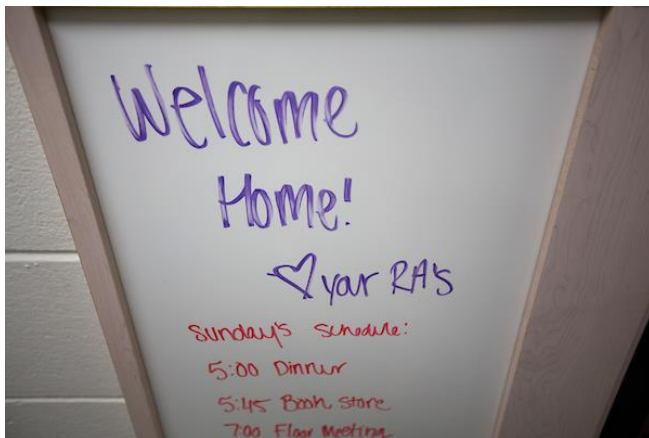 Welcome
Home!
♡ your RA's
Sunday's Schedule:
5:00 Dinner
5:45 Book Store
7:00 Floor Meeting